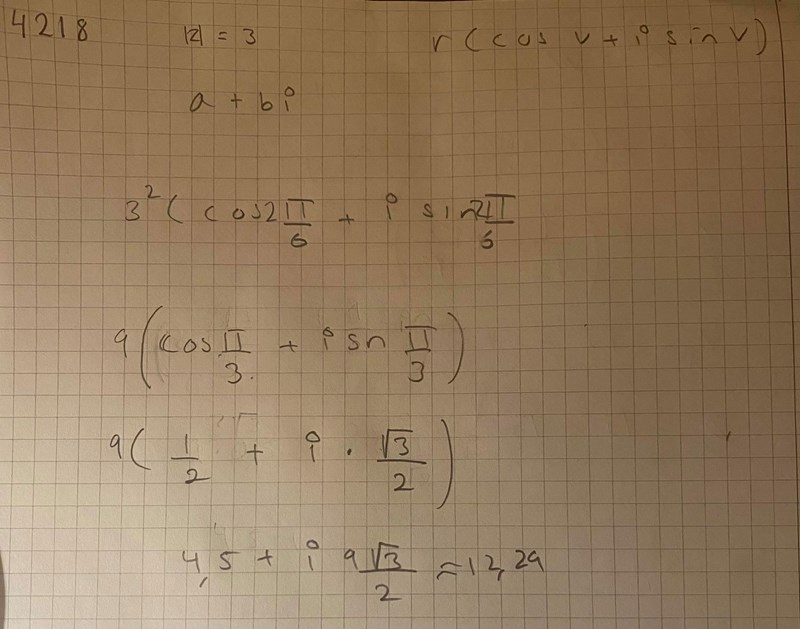 4218 |z| = 3 r(cos v + i sin v)
a + bi
3²(cos2π/6 + i sin2π/6
9(cos π/3 + i sn π/3)
9(1/2 + i · √3/2)
4,5 + i 9√3/2 ≈ 12,29